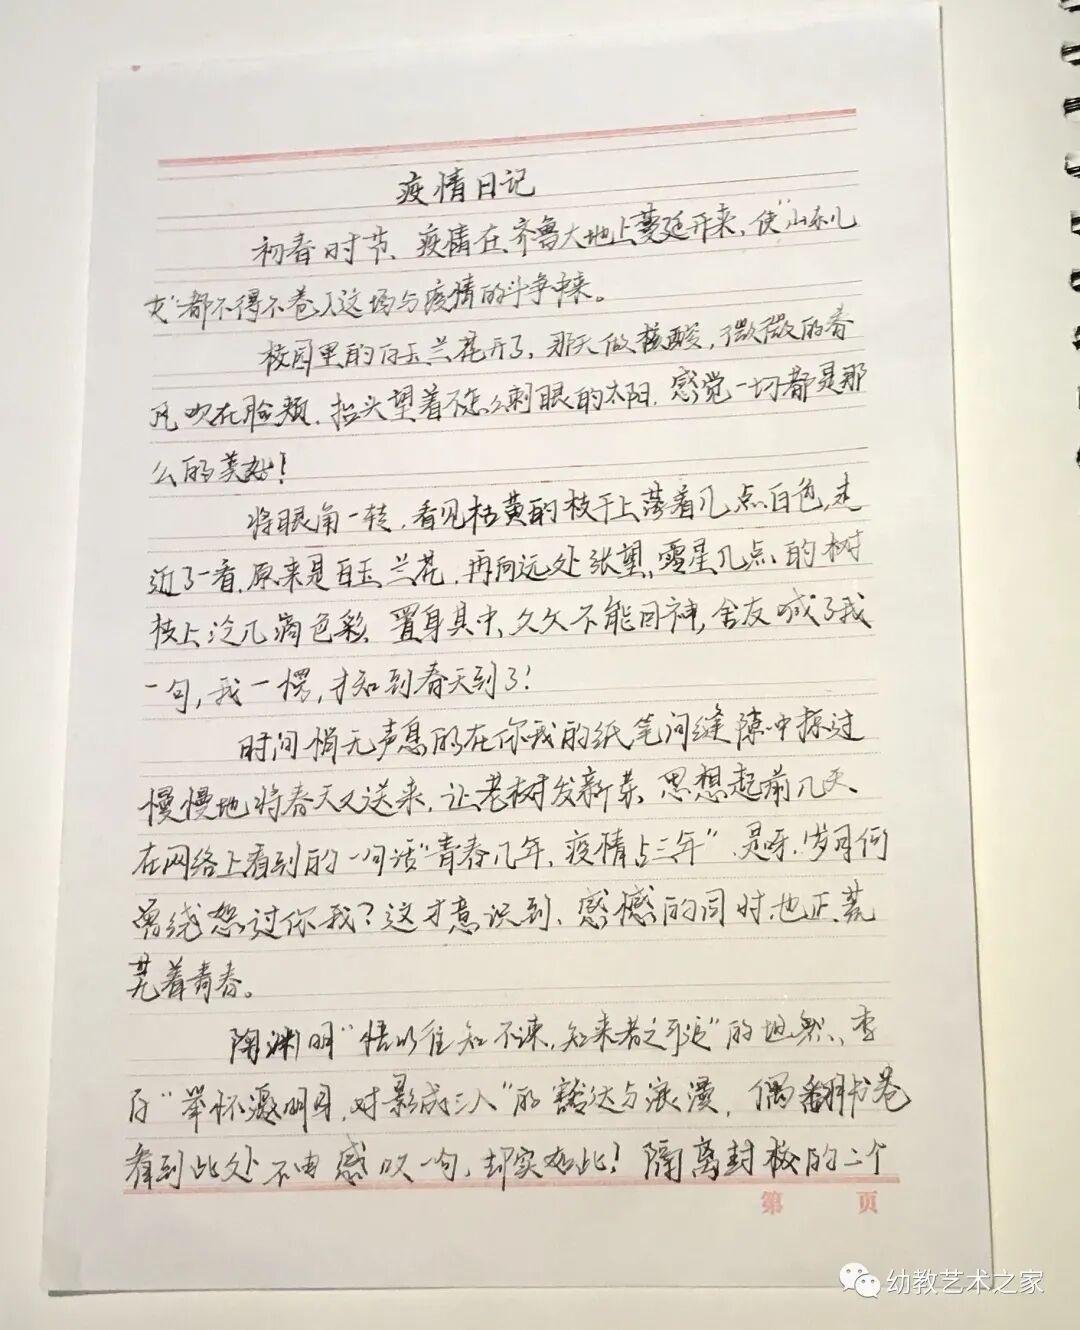 疫情日记
初春时节、疫情在齐鲁大地上蔓延开来，使“山东儿
女”都不得不卷入这场与疫情的斗争中来。
校园里的白玉兰花开了，那天做核酸，微微的春
风吹在脸颊，抬头望着不怎么刺眼的太阳，感觉一切都是那
么的美好！
将眼角一转，看见枯黄的枝干上落着几点白色，走
近了一看，原来是白玉兰花，再向远处张望，零星几点的树
枝上泛几滴色彩、置身其中、久久不能回神，舍友喊了我
一句，我一愣，才知到春天到了！
时间悄无声息的在你我的纸笔间缝隙中掠过
慢慢地将春天又送来，让老树发新芽、思想起前几天、
在网络上看到的一句话“青春几年，疫情占三年”、是呀、岁月何
曾绕恕过你我？这才意识到、感憾的同时，也正荒
芜着青春。
陶渊明“悟以往知不谏，知来者之可追”的坦然、李
白“举怀邀明月，对影成三人”的豁达与浪漫，偶翻书卷
看到此处不由感叹一句，却实如此！隔离封校的二个
第 页
幼教艺术之家